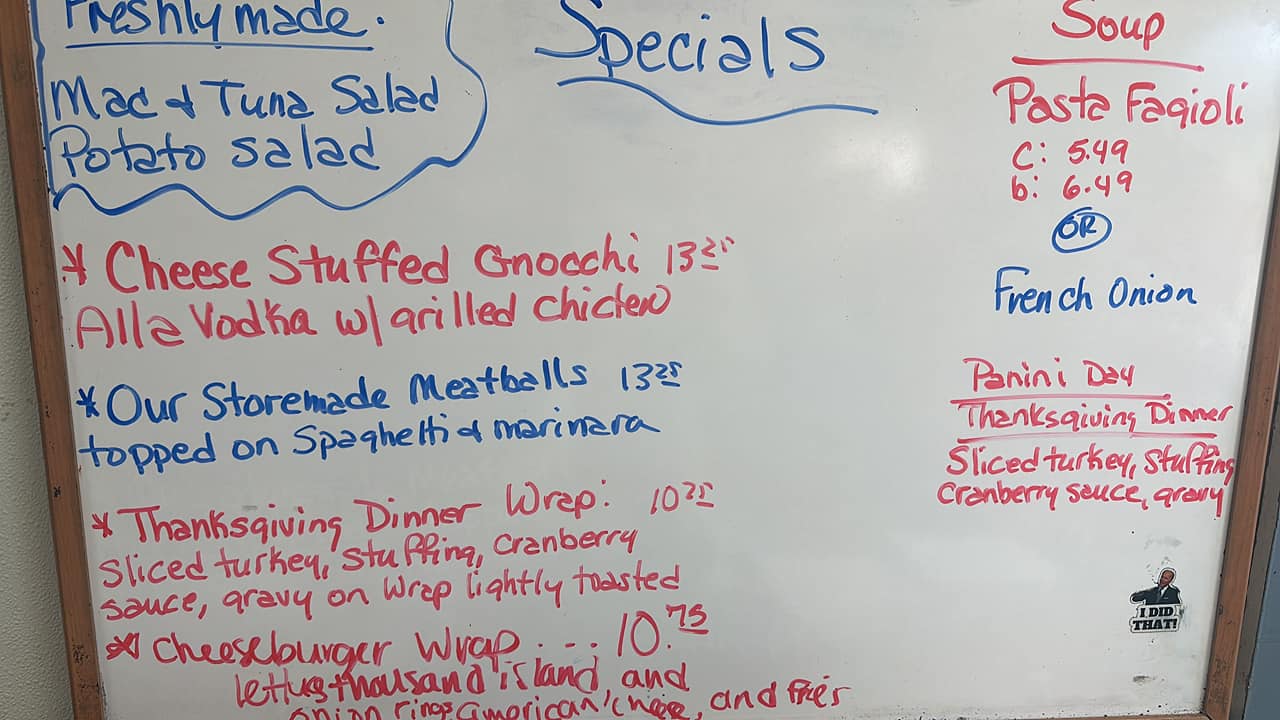 Freshly made.
Mac & Tuna Salad
Potato salad
Specials
* Cheese Stuffed Gnocchi 13 25
Alla Vodka w/ grilled chicken
* Our Storemade Meatballs 13 25
topped on Spaghetti & marinara
* Thanksgiving Dinner Wrap: 10 25
sliced turkey, stuffing, cranberry
sauce, gravy on wrap lightly toasted
* Cheeseburger Wrap ... 10.75
thousand island, and
onion rings, american cheese, and fries
Soup
Pasta Fagioli
C: 5.49
b: 6.49
OR
French Onion
Panini Day
Thanksgiving Dinner
Sliced turkey, stuffing
cranberry sauce, gravy
I DID
THAT!